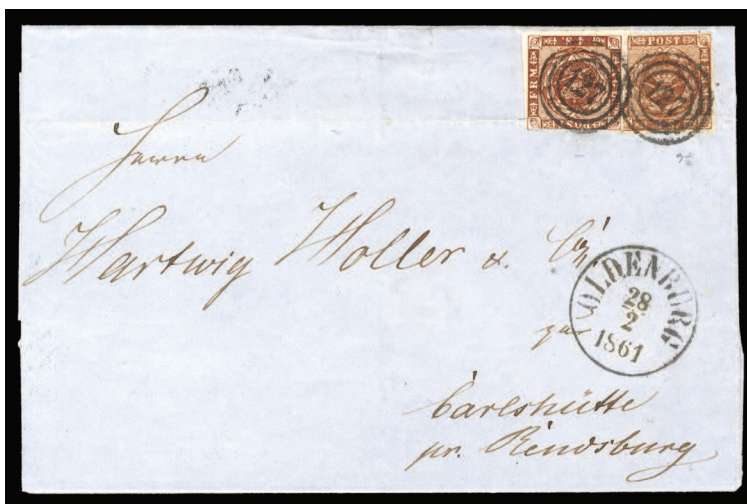 FRM
POST
127
Herrn
Hartwig Holler & Co
OLDENBURG
28
2
1861
zur
Carlshütte
pr. Rendsburg